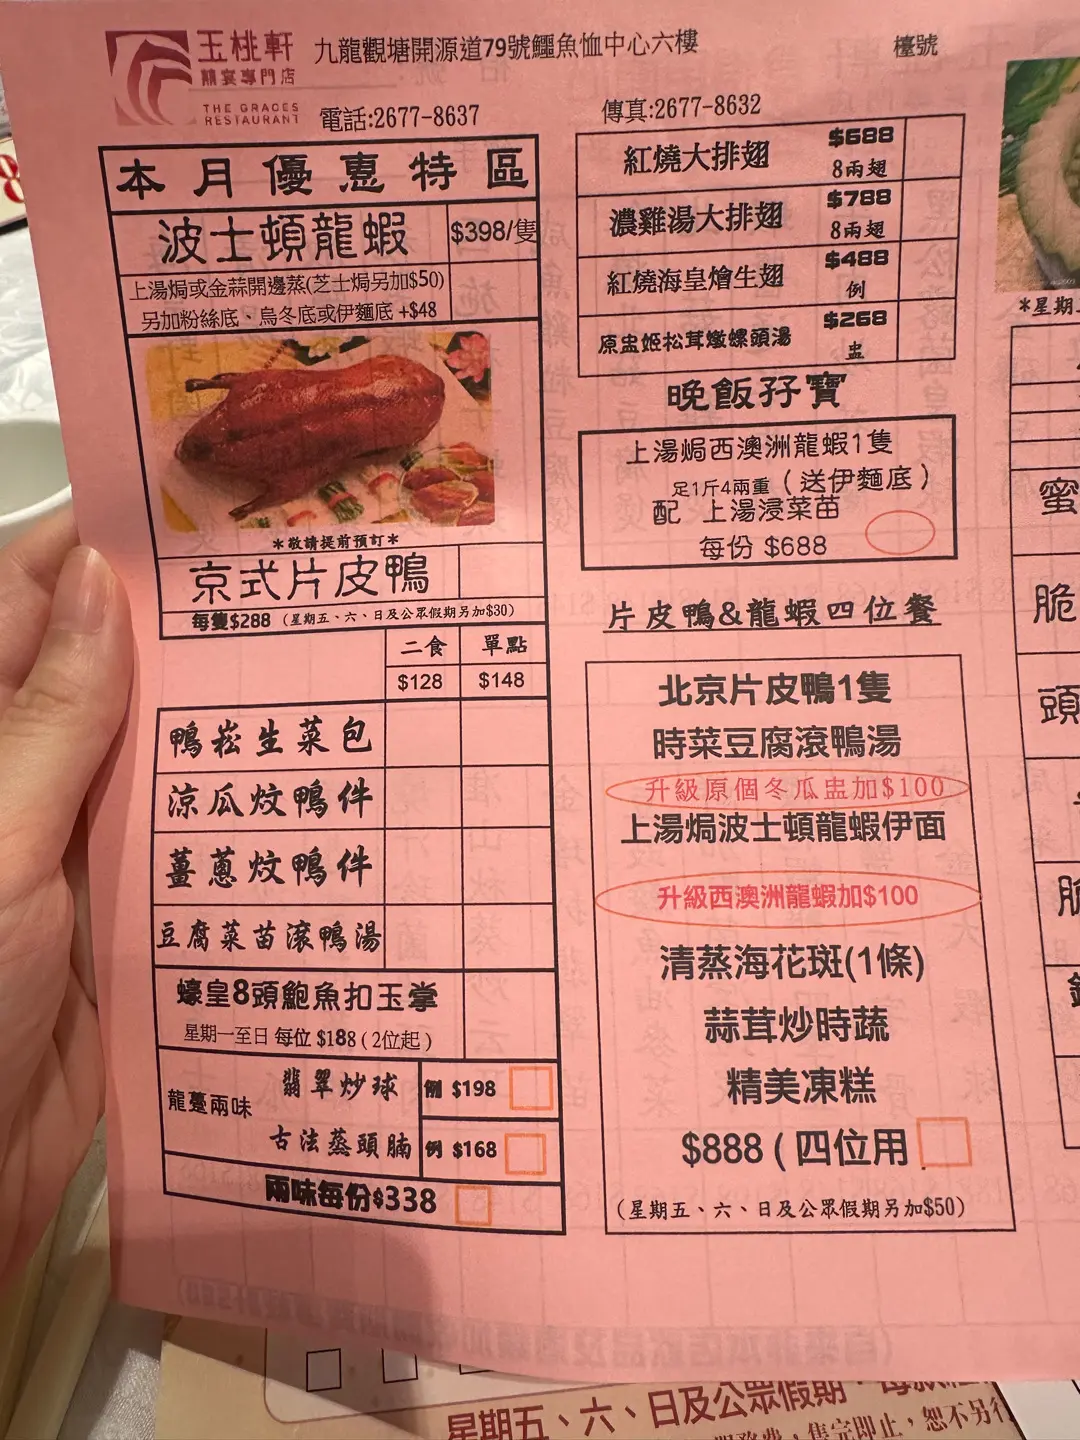 玉桃軒
囍宴專門店
THE GRACES
RESTAURANT
九龍觀塘開源道79號鱷魚恤中心六樓
檯號
電話:2677-8637
傳真:2677-8632
本月優惠特區
波士頓龍蝦 $398/隻
上湯焗或金蒜開邊蒸(芝士焗另加$50)
另加粉絲底、烏冬底或伊麵底 +$48
*敬請提前預訂*
京式片皮鴨
每隻$288 (星期五、六、日及公眾假期另加$30)
二食 單點
$128 $148
鴨崧生菜包
涼瓜炆鴨件
薑蔥炆鴨件
豆腐菜苗滾鴨湯
蠔皇8頭鮑魚扣玉掌
星期一至日 每位 $188 ( 2位起 )
龍躉兩味
翡翠炒球 例 $198
古法蒸頭腩 例 $168
兩味每份$338
紅燒大排翅 $688
8兩翅
濃雞湯大排翅 $788
8兩翅
紅燒海皇燴生翅 $488
例
原盅姬松茸燉螺頭湯 $268
盅
晚飯孖寶
上湯焗西澳洲龍蝦1隻
足1斤4兩重 ( 送伊麵底 )
配 上湯浸菜苗
每份 $688
片皮鴨&龍蝦四位餐
北京片皮鴨1隻
時菜豆腐滾鴨湯
升級原個冬瓜盅加$100
上湯焗波士頓龍蝦伊面
升級西澳洲龍蝦加$100
清蒸海花斑(1條)
蒜茸炒時蔬
精美凍糕
$888 ( 四位用
(星期五、六、日及公眾假期另加$50)
*星期
蜜
脆
頭
星期五、六、日及公眾假期
售完即止，恕不另行